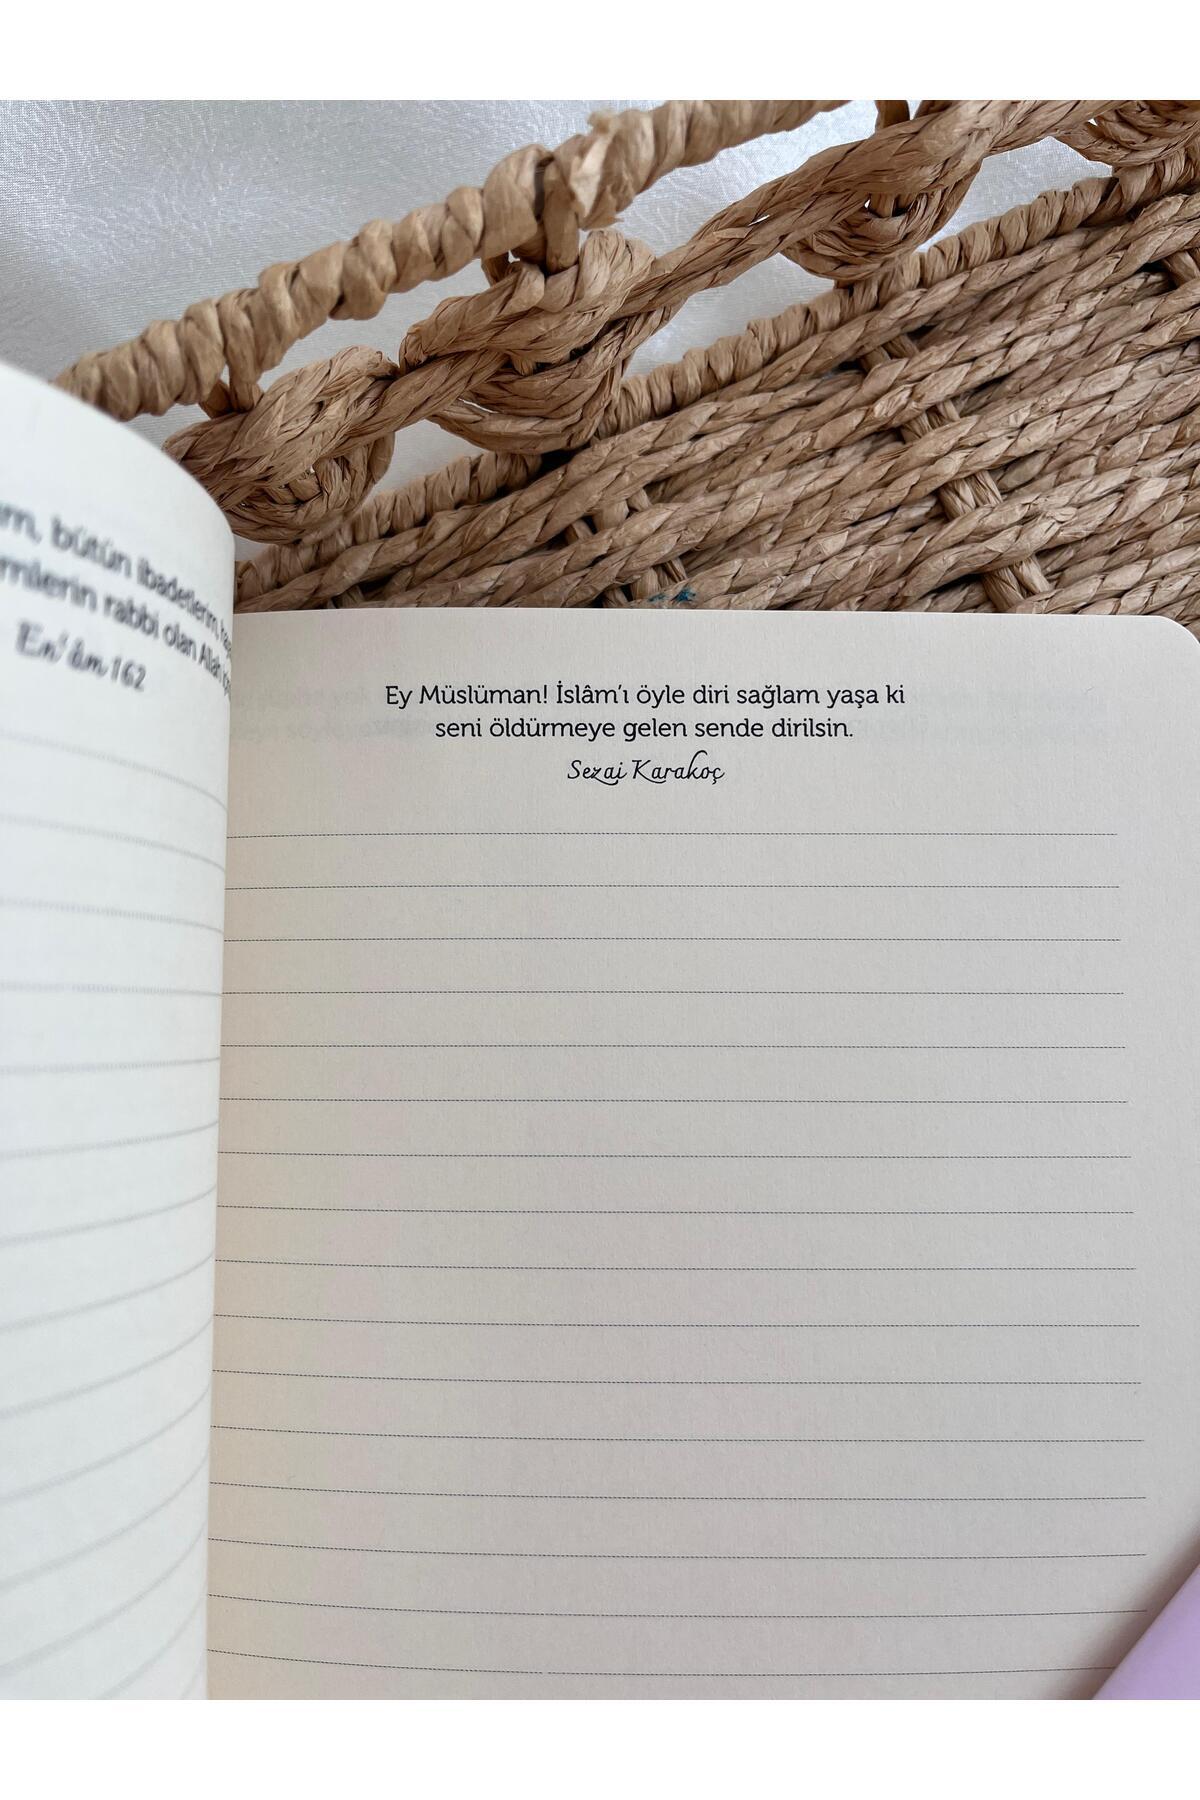 bütün ibadetlerim,
rabbi olan Allah
En'âm 162
Ey Müslüman! İslâm'ı öyle diri sağlam yaşa ki
seni öldürmeye gelen sende dirilsin.
Sezai Karakoç